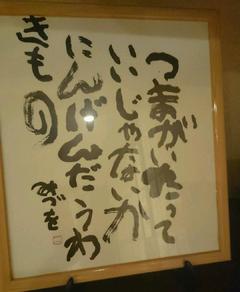 つまがいたって
いいじゃないか
にんげんだうわ
きもの
みづを